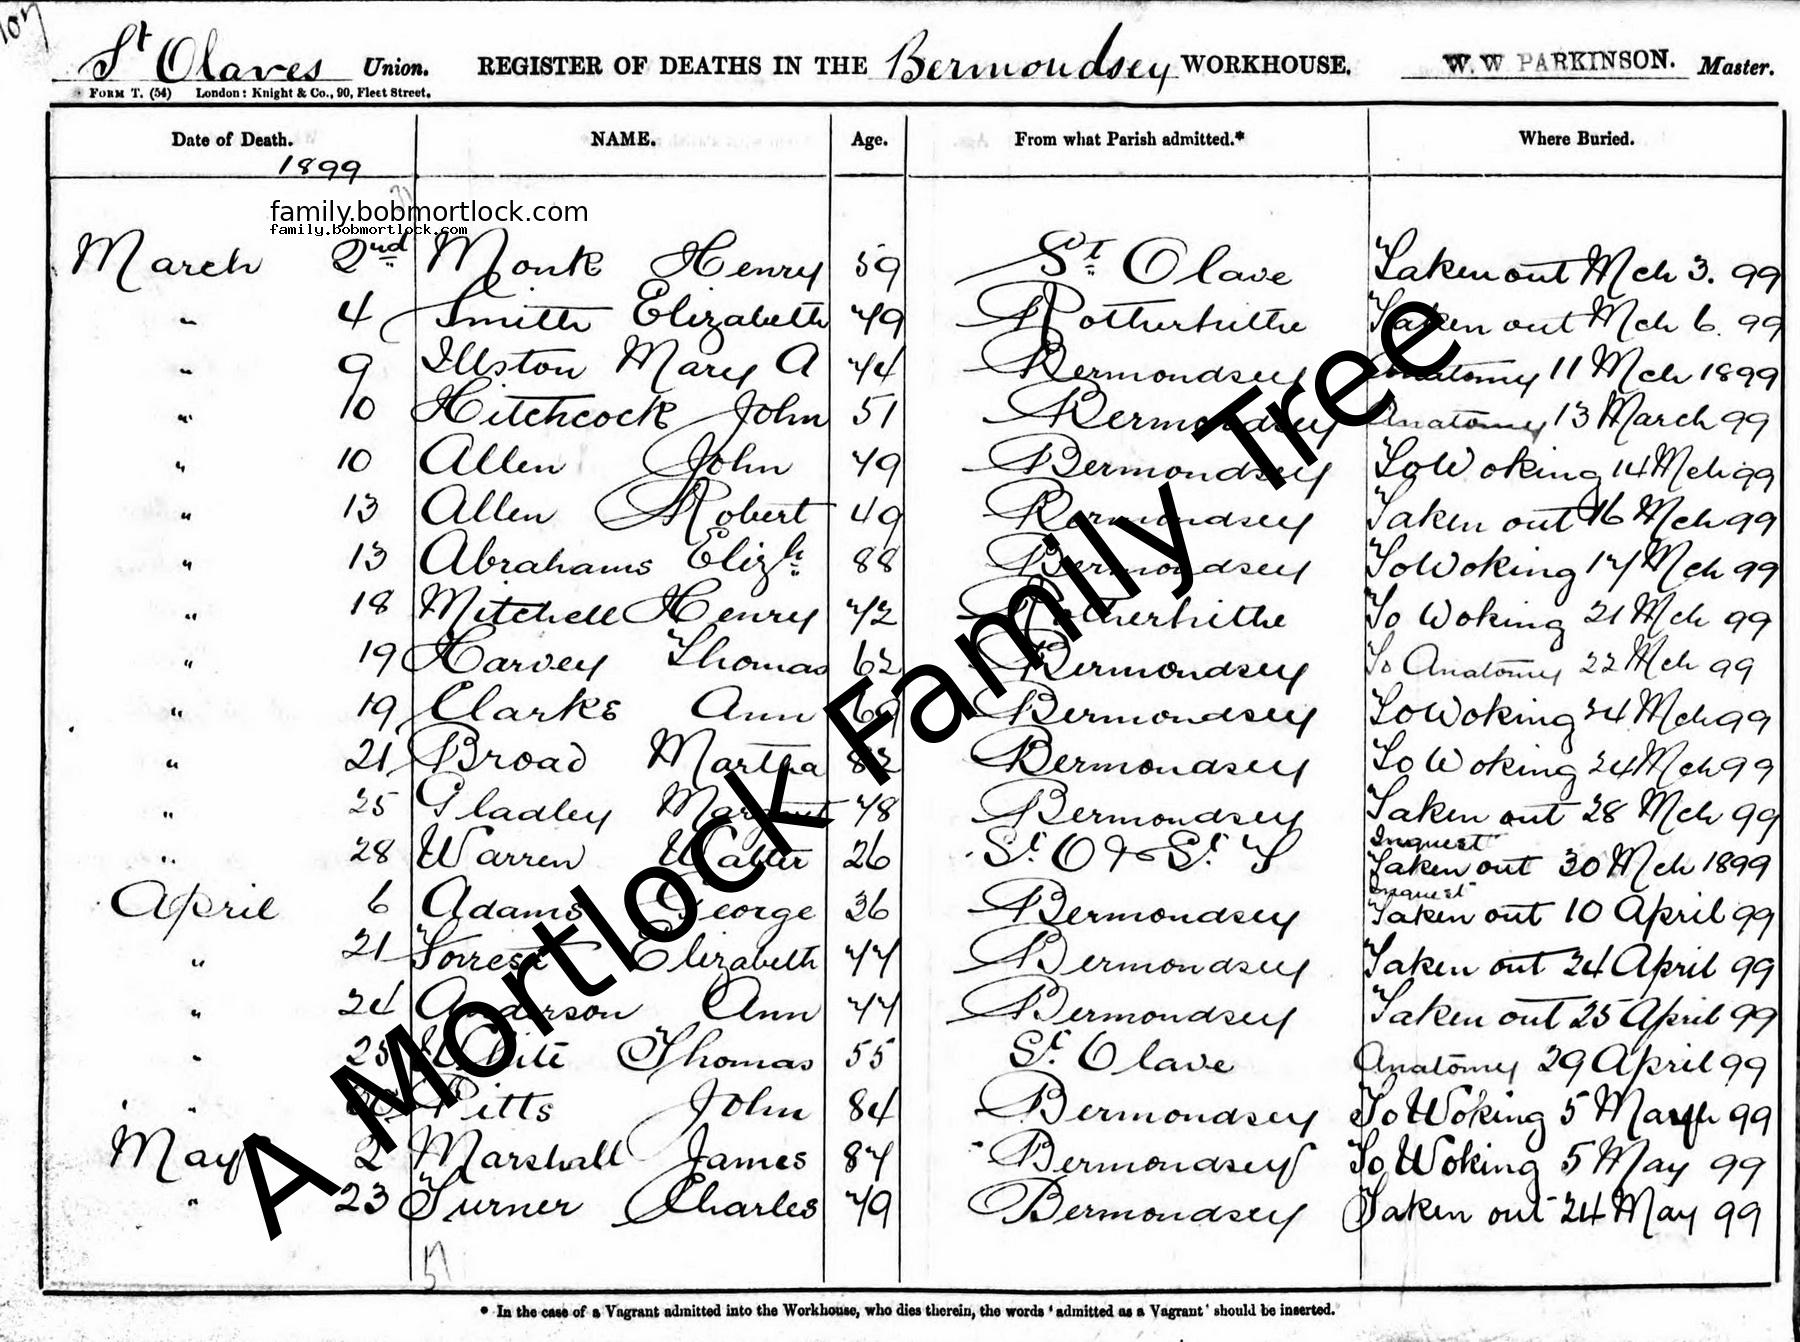 107
St Olaves Union. REGISTER OF DEATHS IN THE Bermondsey WORKHOUSE. W.W PARKINSON. Master.
FORM T. (54) London: Knight & Co., 90, Fleet Street.
Date of Death. NAME. Age. From what Parish admitted.* Where Buried.
1899
family.bobmortlock.com
family.bobmortlock.com
March 2nd Monk Henry 59 St Olave Taken out Mch 3. 99
" 4 Smith Elizabeth 79 Rotherhithe Taken out Mch 6. 99
" 9 Illston Mary A 74 Bermondsey Anatomy 11 Mch 1899
" 10 Hitchcock John 51 Bermondsey Anatomy 13 March 99
" 10 Allen John 79 Bermondsey To Woking 14 Mch 99
" 13 Allen Robert 49 Bermondsey Taken out 16 Mch 99
" 13 Abrahams Elizh 88 Bermondsey To Woking 17 Mch 99
" 18 Mitchell Henry 72 Rotherhithe To Woking 21 Mch 99
" 19 Harvey Thomas 62 Bermondsey To Anatomy 22 Mch 99
" 19 Clarke Ann 69 Bermondsey To Woking 24 Mch 99
" 21 Broad Martha 82 Bermondsey To Woking 24 Mch 99
" 25 Gladley Margaret 78 Bermondsey Taken out 28 Mch 99
Inquest
" 28 Warren Walter 26 St O & St T Taken out 30 Mch 1899
Inquest
April 6 Adams George 36 Bermondsey Taken out 10 April 99
" 21 Forrest Elizabeth 77 Bermondsey Taken out 24 April 99
" 24 Anderson Ann 77 Bermondsey Taken out 25 April 99
" 25 White Thomas 55 St Olave Anatomy 29 April 99
" Pitts John 84 Bermondsey To Woking 5 March 99
May 2 Marshall James 87 Bermondsey To Woking 5 May 99
" 23 Turner Charles 79 Bermondsey Taken out 24 May 99
A Mortlock Family Tree
* In the case of a Vagrant admitted into the Workhouse, who dies therein, the words 'admitted as a Vagrant' should be inserted.